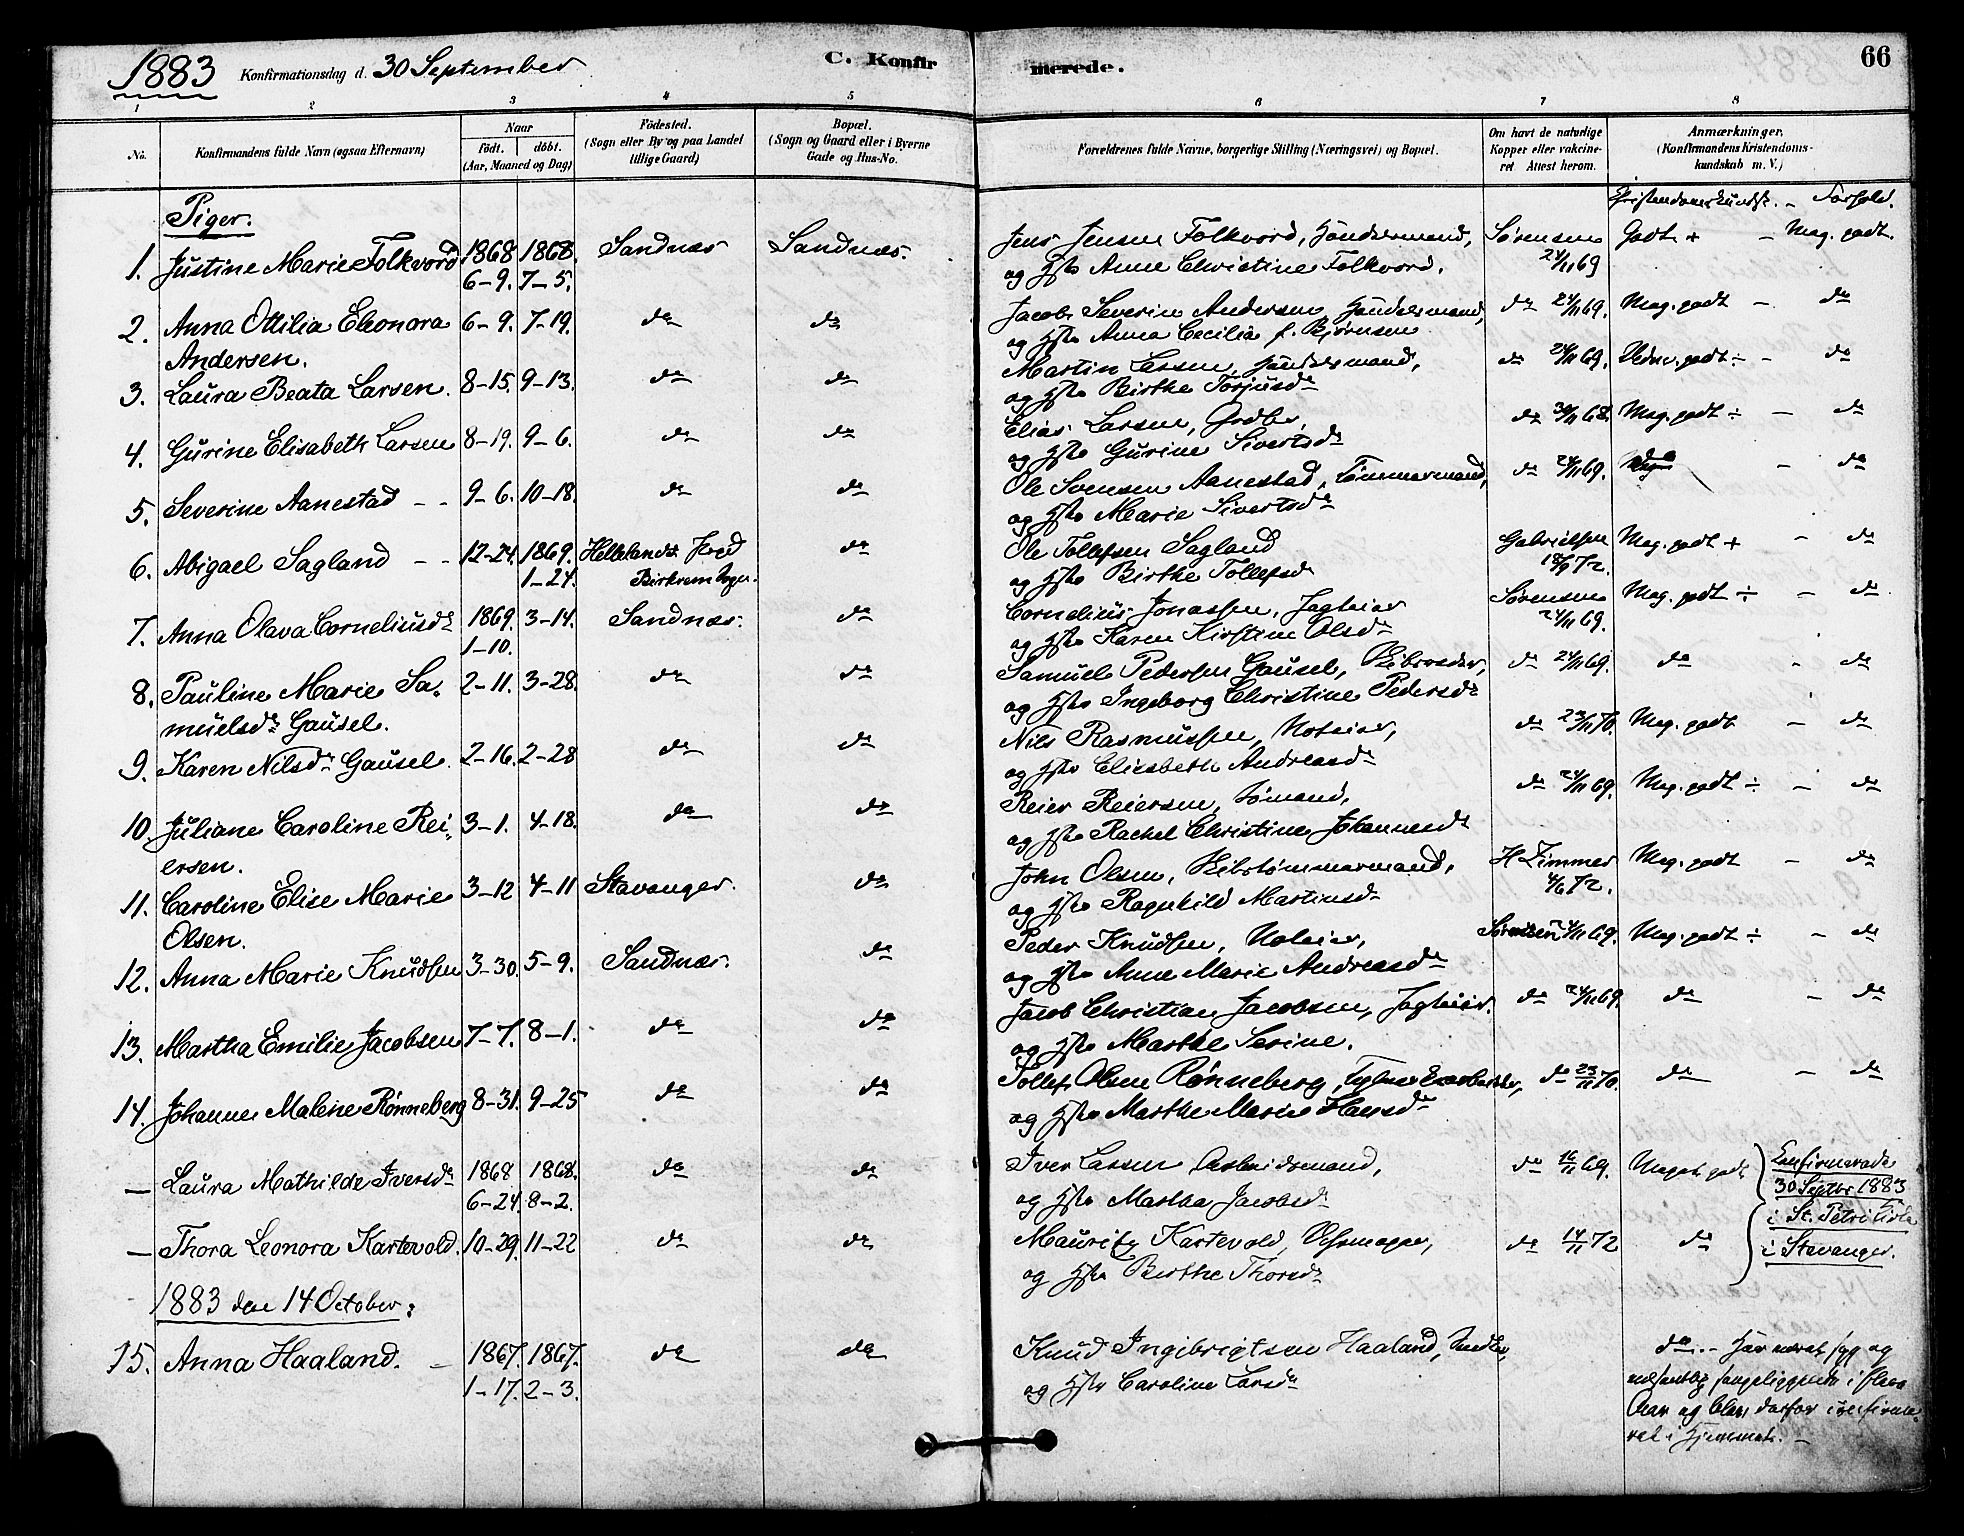 1883 Konfirmationsdag d. 30 September C. Konfirmerede. 66
1 2 3 4 5 6 7 8
No. Konfirmandens fulde Navn (ogsaa Efternavn) Naar født. døbt. (Aar, Maaned og Dag)
Fødested. (Sogn eller By og paa Landet tillige Gaard)
Bopæl. (Sogn og Gaard eller i Byerne Gade og Hus-No.
Forældrenes fulde Navne, borgerlige Stilling (Næringsvei) og Bopæl.
Om havt de naturlige Kopper eller vakcineret Attest herom.
Anmærkninger, (Konfirmandens Kristendomskundskab m. V.)
Kristendomskundsk. – Forhold.
Piger.
1. Justine Marie Folkvord 1868 1868. Sandnæs Sandnæs. Jens Jensen Folkvord, Handelsmand, Sørensen Godt + – Meg. godt.
6–9. 7–5. og Hstr Anne Christine Folkvord. 24/11 69
2. Anna Ottilia Eleonora 6–9. 7–19. do do Jacob Severin Andersen, Handelsmand, do 24/11 69. Meg. godt – do
Andersen. og Hstr Anna Cecilia f. Bjørnsen
3. Laura Beata Larsen. 8–15. 9–13. do do Martin Larsen, Handelsmand, do 24/11 69. godt ÷ – do
og Hstr Birthe Torjusdr
4. Gurine Elisabeth Larsen 8–19. 9–6. do do Elias Larsen, do 68. Meg. godt ÷ – do
og Hstr Gurine Sivertsdr
5. Severine Aanestad – – 9–6. 10–18. do do Ole Svensen Aanestad, Tømmermand, do 24/11 69. do – do
og Hstr Marie Sivertsdr
6. Abigael Sagland – – 12–24. 1869. Hellelands Præd do Ole Tollefsen Sagland Gabrielsen Meg. godt + – do
1–24. Birkrem Sogn. og Hstr Birthe Tollefsdr 72.
7. Anna Olava Corneliusdr 1869. 3–14. Sandnæs. do Cornelius Jonassen, Jagteier Sørensen Meg. godt ÷ – do
1–10. og Hstr Karen Kirstine Olsdr 24/11 69.
8. Pauline Marie Sa- 2–11. 3–28. do do Samuel Pedersen Gausel, do 24/11 69. do – do
muelsdr Gausel. og Hstr Ingeborg Christine Pedersdr
9. Karen Nilsdr Gausel. 2–16. 2–28 do do Nils Rasmussen, Noteier, do 23/11 70. Meg. godt – do
og Hstr Elisabeth Andreasdr
10. Juliane Caroline Rei- 3–1. 4–18. do do Reier Reiersen, Sømand, do 24/11 69. Meg. godt ÷ – do
ersen. og Hstr Rachel Christine Johannesdr
11. Caroline Elise Marie 3–12 4–11 Stavanger. do John Olsen, Skibstømmermand, H Zimmer Meg. godt – do
Olsen. og Hstr Ragnhild Martinsdr 4/6 72.
12. Anna Marie Knudsen 3–30. 5–9. Sandnæs. do Peder Knudsen, Noteier, Sørensen 24/11 69. Meg. godt ÷ – do
og Hstr Anne Marie Andreasdr
13. Martha Emilie Jacobsen 7–7. 8–1. do do Jacob Christian Jacobsen, Jagteier. do 24/11 69. do – do
og Hstr Marthe Serine.
14. Johanne Malene Rønneberg 8–31. 9–25 do do Tollef Olsen Rønneberg, do 23/11 70. do – do
og Hstr Marthe Marie Hansdr
— Laura Mathilde Iversdr 1868 1868. do do Iver Larsen Arbeidsmand, do 16/11 69. Meget godt Konfirmerede
6–24. 8–2. og Hstr Martha Jacobsdr 30 Septbr 1883
— Thora Leonora Kartevold. 10–29. 11–22 do do Mauritz Kartevold, do 14/11 72 do i St. Petri Kirke
og Hstr Birthe Thorsdr i Stavanger.
1883 den 14 October:
15. Anna Haaland. – 1867. 1867. do do Knud Ingebrigtsen Haaland, Snedker, do – Har været syg og
1–17. 2–3. og Hstr Caroline Larsdr sengeliggende i flere
Aar og blev derfor confirme-
ret i Hjemmet. –